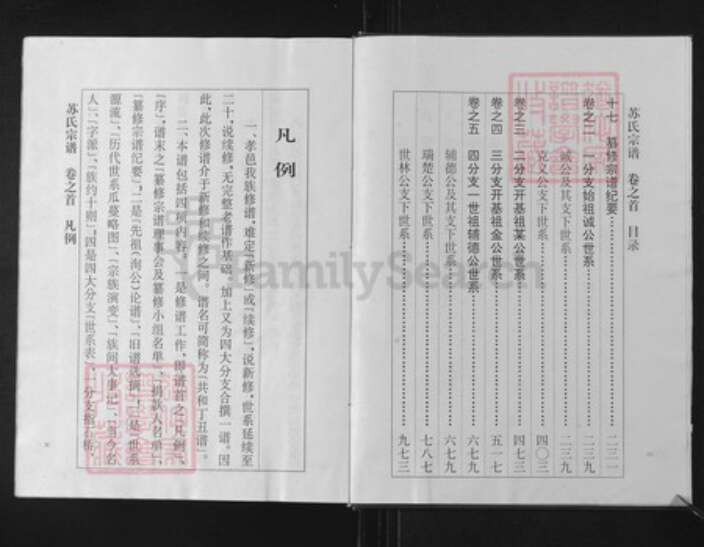 苏氏宗谱 卷之首 目录
十七 纂修宗谱纪要……二三一
卷之二 一分支始祖诚公世系……二三九
诚公及其支下世系……二三九
克义公支下世系……四〇三
卷之三 二分支开基祖某公世系……四七三
卷之四 三分支开基祖金公世系……五一七
卷之五 四分支一世祖辅德公世系……六七九
辅德公及其支下世系……六七九
瑞楚公支下世系……七八七
世林公支下世系……九七三
凡例
一、孝邑我族修谱，难定「新修」或「续修」，说新修，世系延续至
二十，说续修，无完整老谱作基础，加上又为四大分支合撰一谱。因
此，此次修谱介于新修和续修之间。谱名可简称为「共和丁丑谱」。
二、本谱包括四项内容。一是修谱工作，即谱首之「凡例」、
「序」，谱末之「纂修宗谱理事会及纂修小组名单」、「捐款人名单」、
「纂修宗谱纪要」，二是「先祖(洵公)论谱」、「旧谱选摘」，三是「世系
源流」、「历代世系瓜蔓略图」、「宗族演变」、「族间大事记」、
人」、「字派」、「族约十则」，四是四大分支「世系表」，一分支
苏氏宗谱 卷之首 凡例
FamilySearch